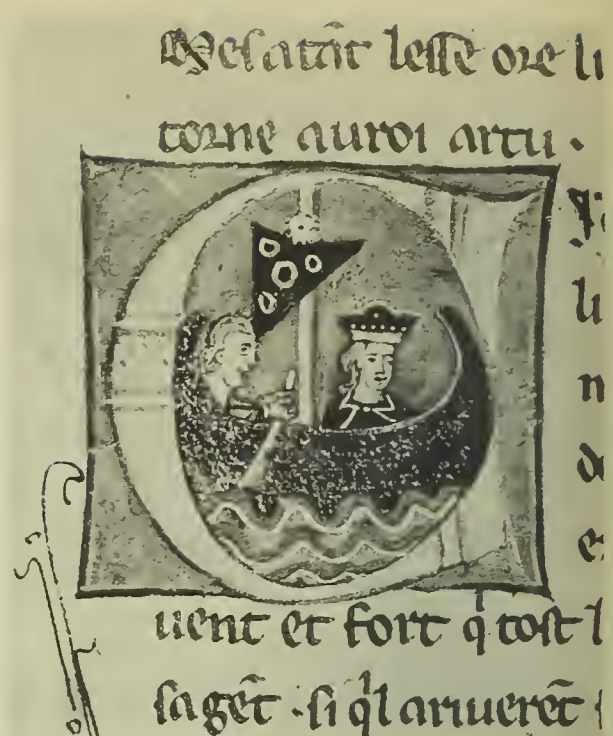 Mes atāt leſſe ore li
torne auroi artu .
li
n
uent et fort qͥ toſt l
ſagēt . ſi qͥl ariuerēt